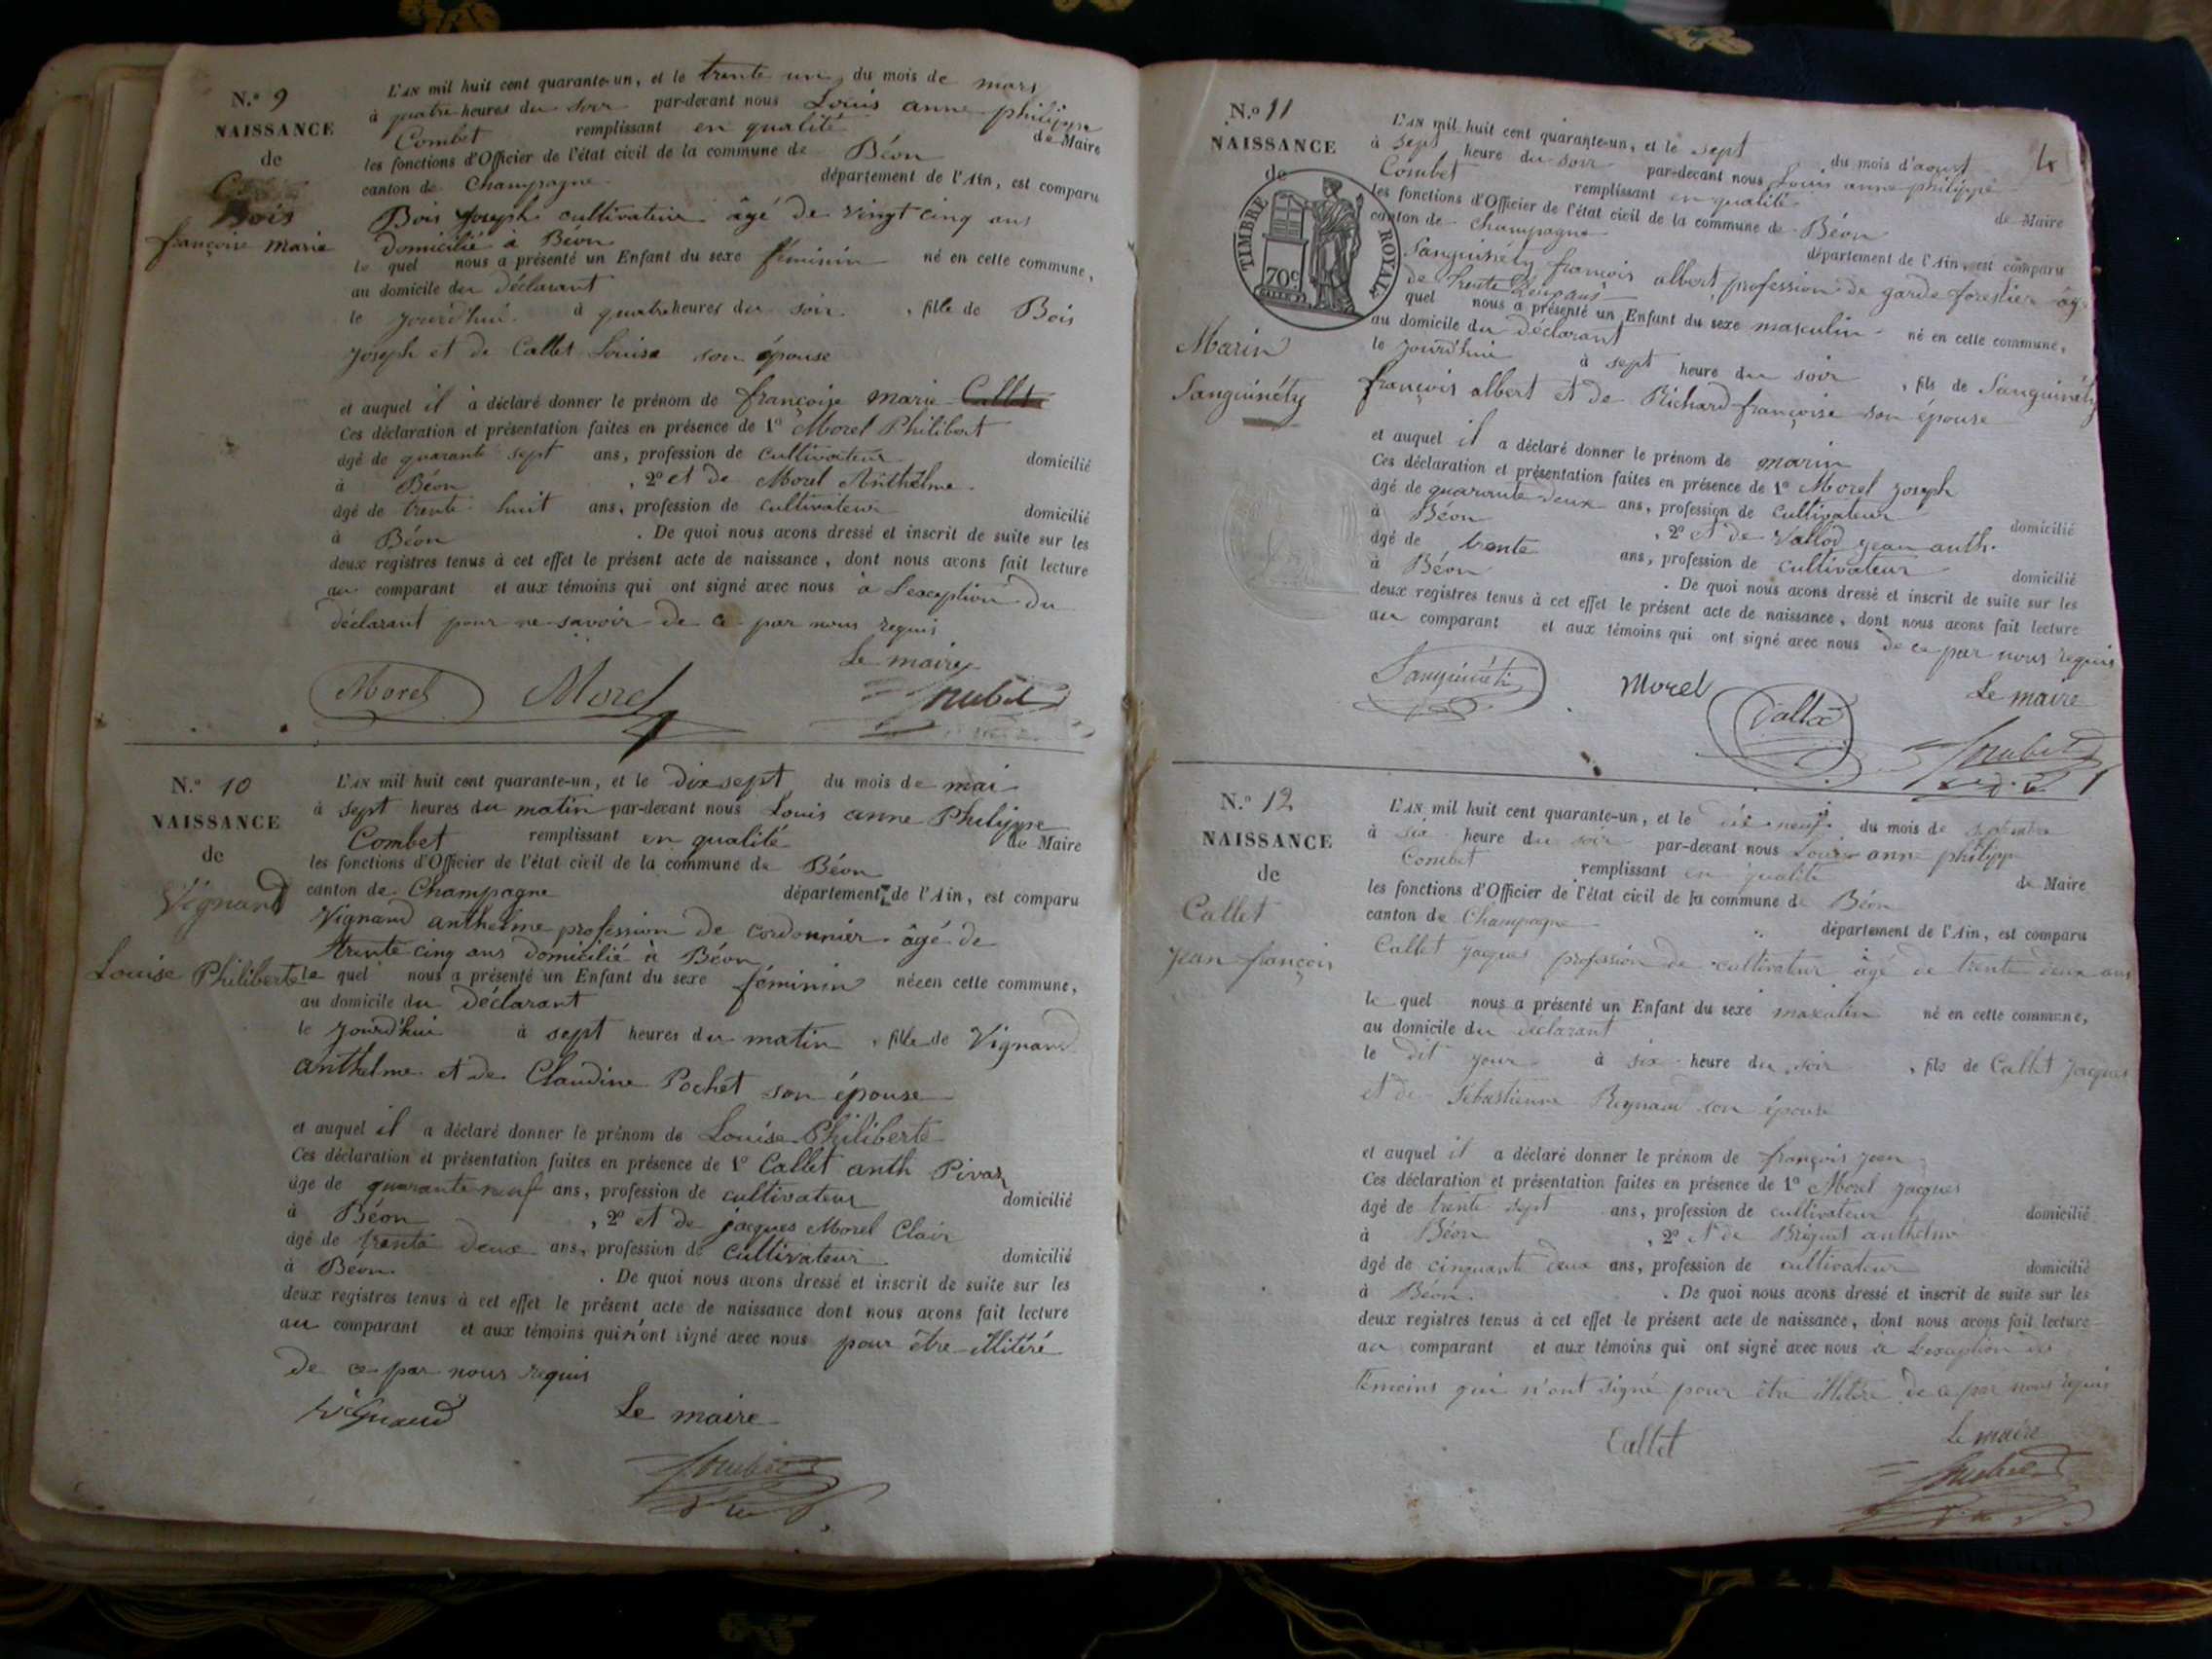 N.° 9
NAISSANCE
de
Bois
françoise marie
L'AN mil huit cent quarante-un, et le trente un du mois de mars
à quatre heures du soir par-devant nous Louis anne philippe
Combet remplissant en qualité de Maire
les fonctions d'Officier de l'état civil de la commune de Béon
canton de Champagne département de l'Ain, est comparu
Bois Joseph cultivateur âgé de vingt cinq ans
domicilié à Béon
le quel nous a présenté un Enfant du sexe féminin né en cette commune,
au domicile du déclarant
le jourd'hui à quatre heures du soir, fille de Bois
joseph et de Callet Louise son épouse
et auquel il a déclaré donner le prénom de françoise marie
Ces déclaration et présentation faites en présence de 1° Morel Philibert
âgé de quarante sept ans, profession de cultivateur domicilié
à Béon, 2° et de Morel Anthelme
âgé de trente huit ans, profession de cultivateur domicilié
à Béon. De quoi nous avons dressé et inscrit de suite sur les
deux registres tenus à cet effet le présent acte de naissance, dont nous avons fait lecture
au comparant et aux témoins qui ont signé avec nous à l'exception du
déclarant pour ne savoir de ce par nous requis
Le maire
Morel Morel
N.° 10
NAISSANCE
de
Vignand
Louise Philiberte
L'AN mil huit cent quarante-un, et le dix sept du mois de mai
à sept heures du matin par-devant nous Louis anne Philippe
Combet remplissant en qualité de Maire
les fonctions d'Officier de l'état civil de la commune de Béon
canton de Champagne département de l'Ain, est comparu
Vignand anthelme profession de cordonnier âgé de
trente cinq ans domicilié à Béon
le quel nous a présenté un Enfant du sexe féminin née en cette commune,
au domicile du déclarant
le jourd'hui à sept heures du matin, fille de Vignand
anthelme et de Claudine Pochet son épouse
et auquel il a déclaré donner le prénom de Louise Philiberte
Ces déclaration et présentation faites en présence de 1° Callet anth Pivas
âgé de quarante neuf ans, profession de cultivateur domicilié
à Béon, 2° et de jacques Morel Clair
âgé de trente deux ans, profession de cultivateur domicilié
à Béon. De quoi nous avons dressé et inscrit de suite sur les
deux registres tenus à cet effet le présent acte de naissance dont nous avons fait lecture
au comparant et aux témoins qui n'ont signé avec nous pour être illitéré
de ce par nous requis
Vignand Le maire
4
N.° 11
NAISSANCE
de
TIMBRE ROYAL
70c
Marin
Sanguinéty
L'AN mil huit cent quarante-un, et le sept du mois d'aoust
à sept heure du soir par-devant nous Louis anne philippe
Combet remplissant en qualité de Maire
les fonctions d'Officier de l'état civil de la commune de Béon
canton de Champagne département de l'Ain, est comparu
Sanguinéty françois albert profession de garde forestier âgé
de trente deux ans
quel nous a présenté un Enfant du sexe masculin né en cette commune,
au domicile du déclarant
le jourd'hui à sept heure du soir, fils de Sanguinéty
françois albert et de Richard françoise son épouse
et auquel il a déclaré donner le prénom de marin
Ces déclaration et présentation faites en présence de 1° Morel joseph
âgé de quarante deux ans, profession de cultivateur domicilié
à Béon, 2° et de Vallod jean anth.
âgé de trente ans, profession de cultivateur domicilié
à Béon. De quoi nous avons dressé et inscrit de suite sur les
deux registres tenus à cet effet le présent acte de naissance, dont nous avons fait lecture
au comparant et aux témoins qui ont signé avec nous de ce par nous requis
Sanguinéti Morel Le maire
Vallod
N.° 12
NAISSANCE
de
Callet
jean françois
L'AN mil huit cent quarante-un, et le dix neuf du mois de septembre
à six heure du soir par-devant nous Louis anne philippe
Combet remplissant en qualité de Maire
les fonctions d'Officier de l'état civil de la commune de Béon
canton de Champagne département de l'Ain, est comparu
Callet jacques profession de cultivateur âgé de trente deux ans
le quel nous a présenté un Enfant du sexe masculin né en cette commune,
au domicile du déclarant
le dit jour à six heure du soir, fils de Callet jacques
et de Sébastienne Reynaud son épouse
et auquel il a déclaré donner le prénom de françois jean
Ces déclaration et présentation faites en présence de 1° Morel jacques
âgé de trente sept ans, profession de cultivateur domicilié
à Béon, 2° et de anthelme
âgé de cinquante deux ans, profession de cultivateur domicilié
à Béon. De quoi nous avons dressé et inscrit de suite sur les
deux registres tenus à cet effet le présent acte de naissance, dont nous avons fait lecture
au comparant et aux témoins qui ont signé avec nous à l'exception des
témoins qui n'ont signé pour être illitéré de ce par nous requis
Callet Le maire